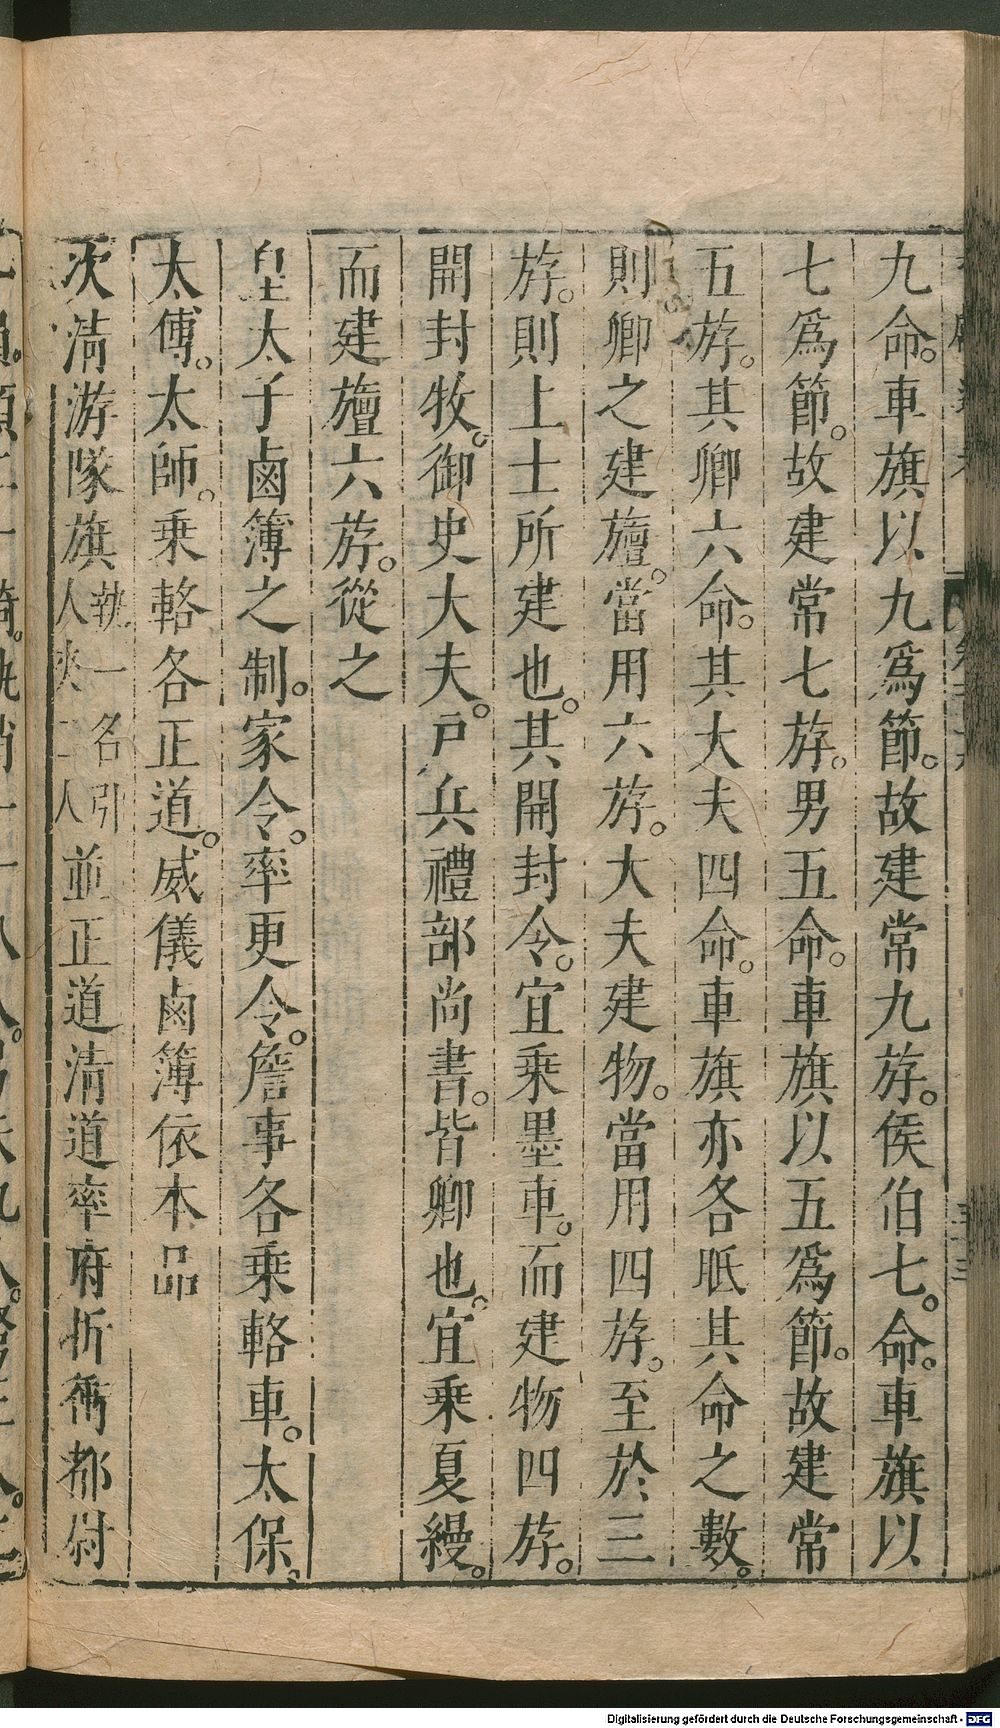 九命。車旗以九爲節。故建常九斿。侯伯七。命。車旗以
七爲節。故建常七斿。男五命。車旗以五爲節。故建常
五斿。其卿六命。其大夫四命。車旗亦各眂其命之數。
則卿之建旜。當用六斿。大夫建物。當用四斿。至於三
斿。則上士所建也。其開封令。宜乘墨車。而建物四斿。
開封牧。御史大夫。戸兵禮部尚書。皆卿也。宜乘夏縵。
而建旜六斿。從之
皇太子鹵簿之制。家令。率更令。詹事各乘輅車。太保。
太傅。太師。乘輅各正道。威儀鹵簿依本品
次淸游隊旗執一名引人夾二人並正道淸道率府折衝都尉
Digitalisierung gefördert durch die Deutsche Forschungsgemeinschaft - DFG